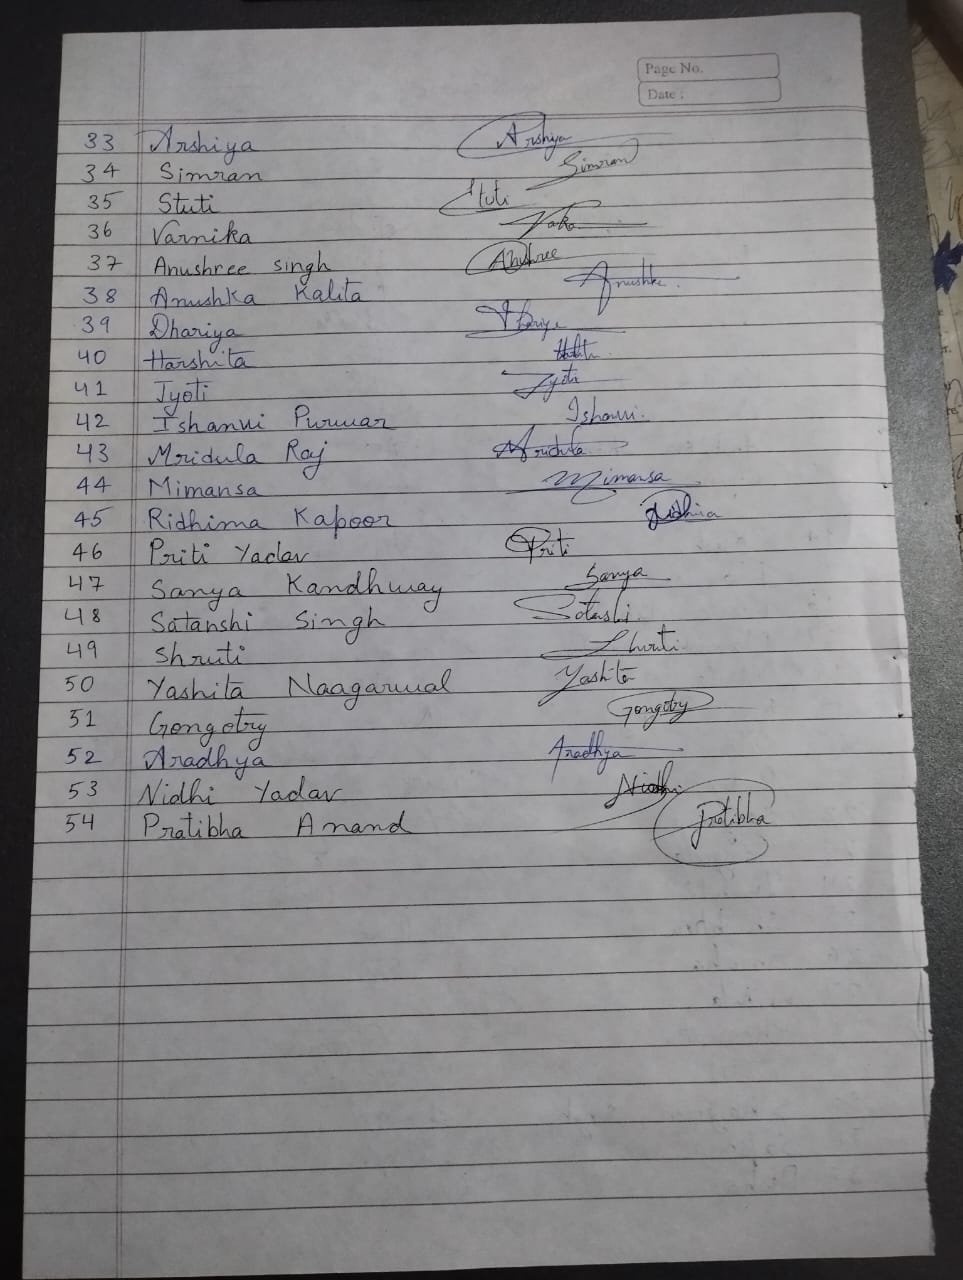 Page No.
Date :
33 Arshiya Arshiya
34 Simran Simran
35 Stuti Stuti
36 Varnika
37 Anushree singh Anushree
38 Anushka Kalita Anushka
39 Dhariya Dhariya
40 Harshita
41 Jyoti Jyoti
42 Ishanvi Purwar Ishanvi
43 Mridula Raj Mridula
44 Mimansa Mimansa
45 Ridhima Kapoor
46 Priti Yadav Priti
47 Sanya Kandhway Sanya
48 Satanshi Singh
49 Shruti Shruti
50 Yashita Naagarwal Yashita
51 Gongotry Gongotry
52 Aradhya Aradhya
53 Nidhi Yadav Nidhi
54 Pratibha Anand Pratibha